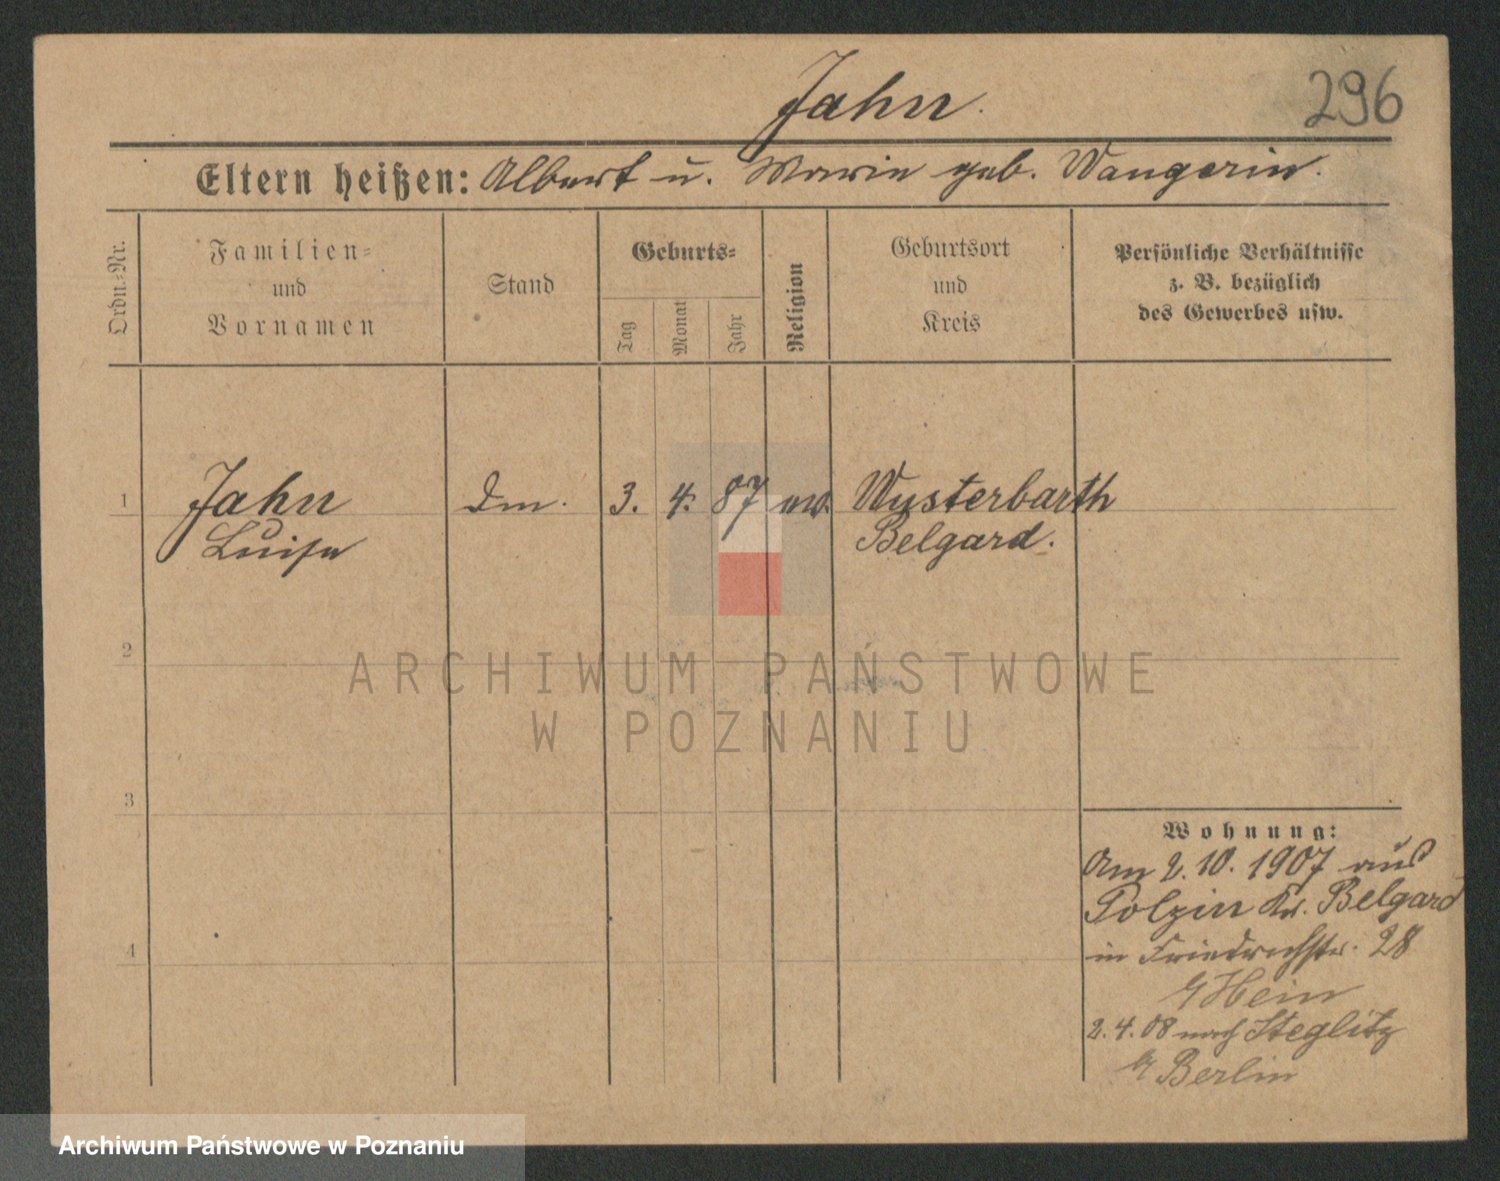 Jahn.
296
Eltern heißen: Albert u. Marie geb. Wangerin.
Ordn.-Nr.
Familien-
und
Vornamen
Stand
Geburts-
Tag
Monat
Jahr
Religion
Geburtsort
und
Kreis
Persönliche Verhältnisse
z. B. bezüglich
des Gewerbes usw.
1 Jahn 3. 4. 87 Wusterbarth
Luise Belgard.
2
3
4
Wohnung:
Am 2.10.1907 aus
Polzin Kr. Belgard
in Friedrichstr. 28
b/ Hein
2.4.08 nach Steglitz
b/ Berlin
ARCHIWUM PAŃSTWOWE
W POZNANIU
Archiwum Państwowe w Poznaniu